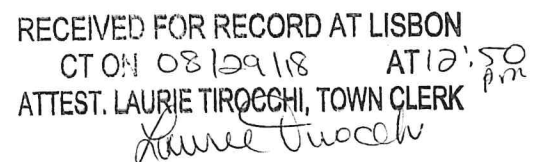 RECEIVED FOR RECORD AT LISBON
CT ON 08/29/18 AT 12:50 pm
ATTEST. LAURIE TIROCCHI, TOWN CLERK
Laurie Tirocchi